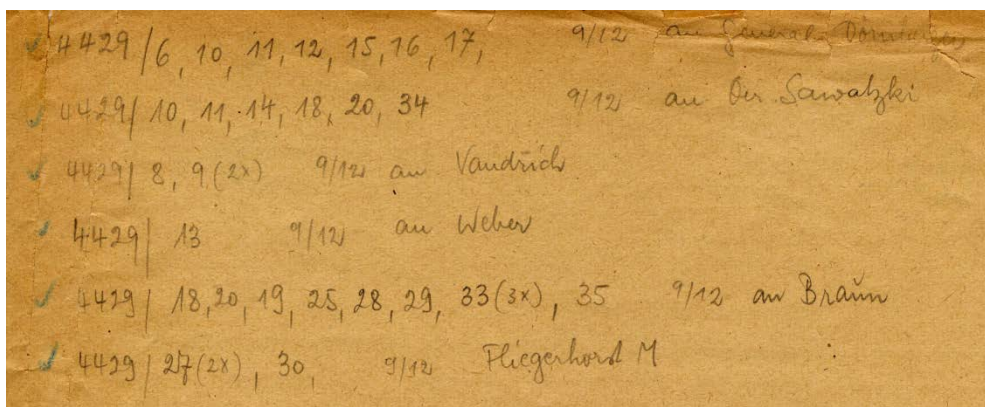 4429/6, 10, 11, 12, 15, 16, 17, 9/12 an General
4429/ 10, 11, 14, 18, 20, 34 9/12 an Sawatzki
4429/ 8, 9 (2x) 9/12 an Vandrich
4429/ 13 9/12 an Weber
4429/ 18, 20, 19, 25, 28, 29, 33 (3x), 35 9/12 an Braun
4429/ 27 (2x), 30, 9/12 Fliegerhorst M